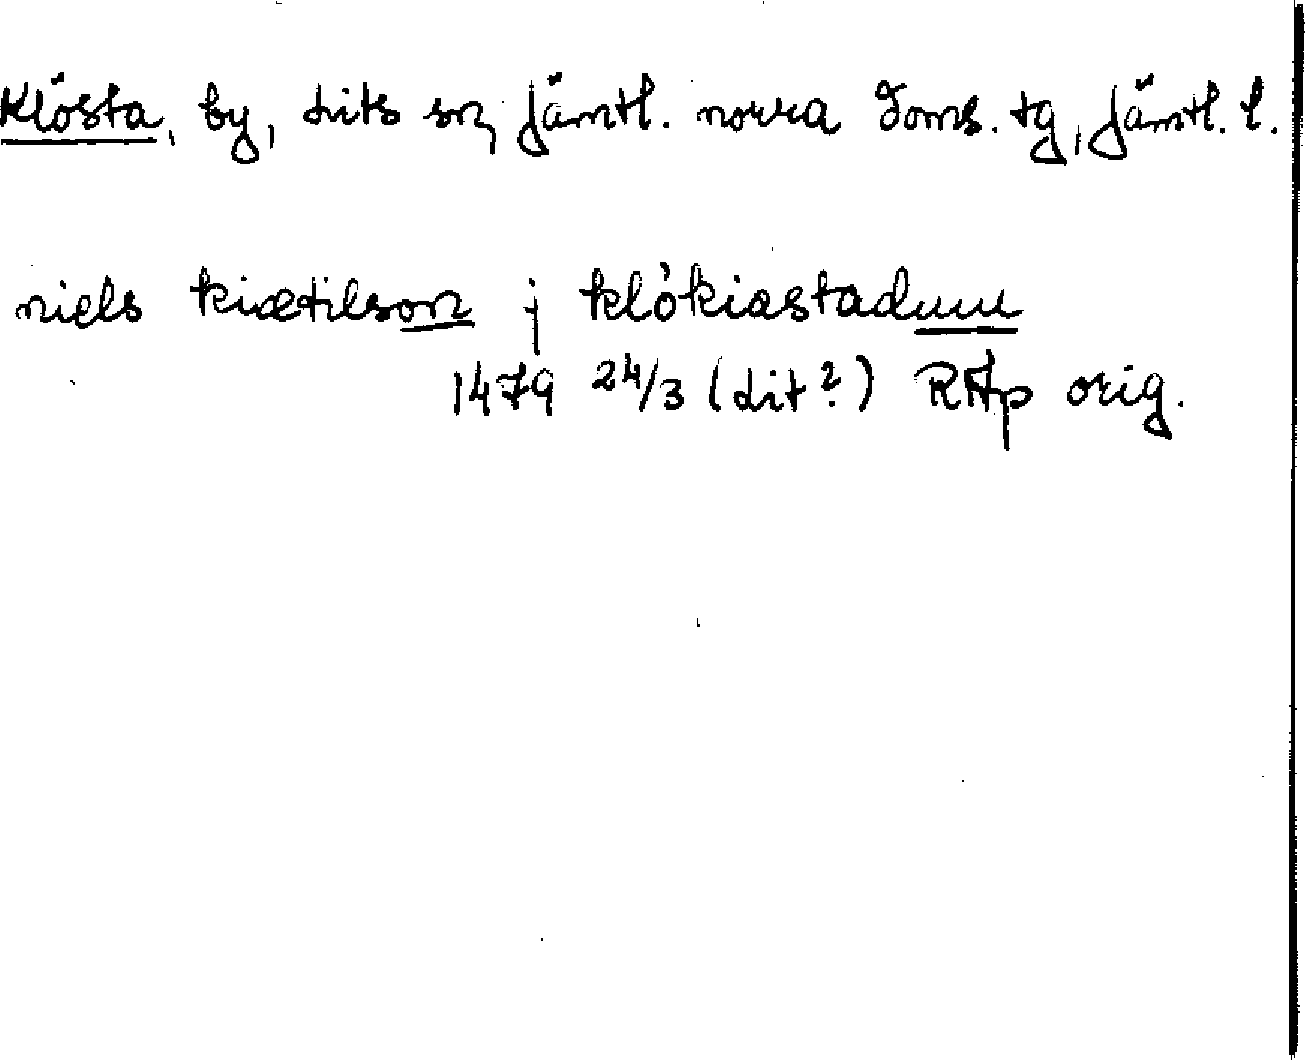 Klösta, by, Lits sn, Jämtl. norra doms. tg, Jämtl. l.
niels kiætilson j klókiastadum
1479 24/3 (Lit?) RAp orig.